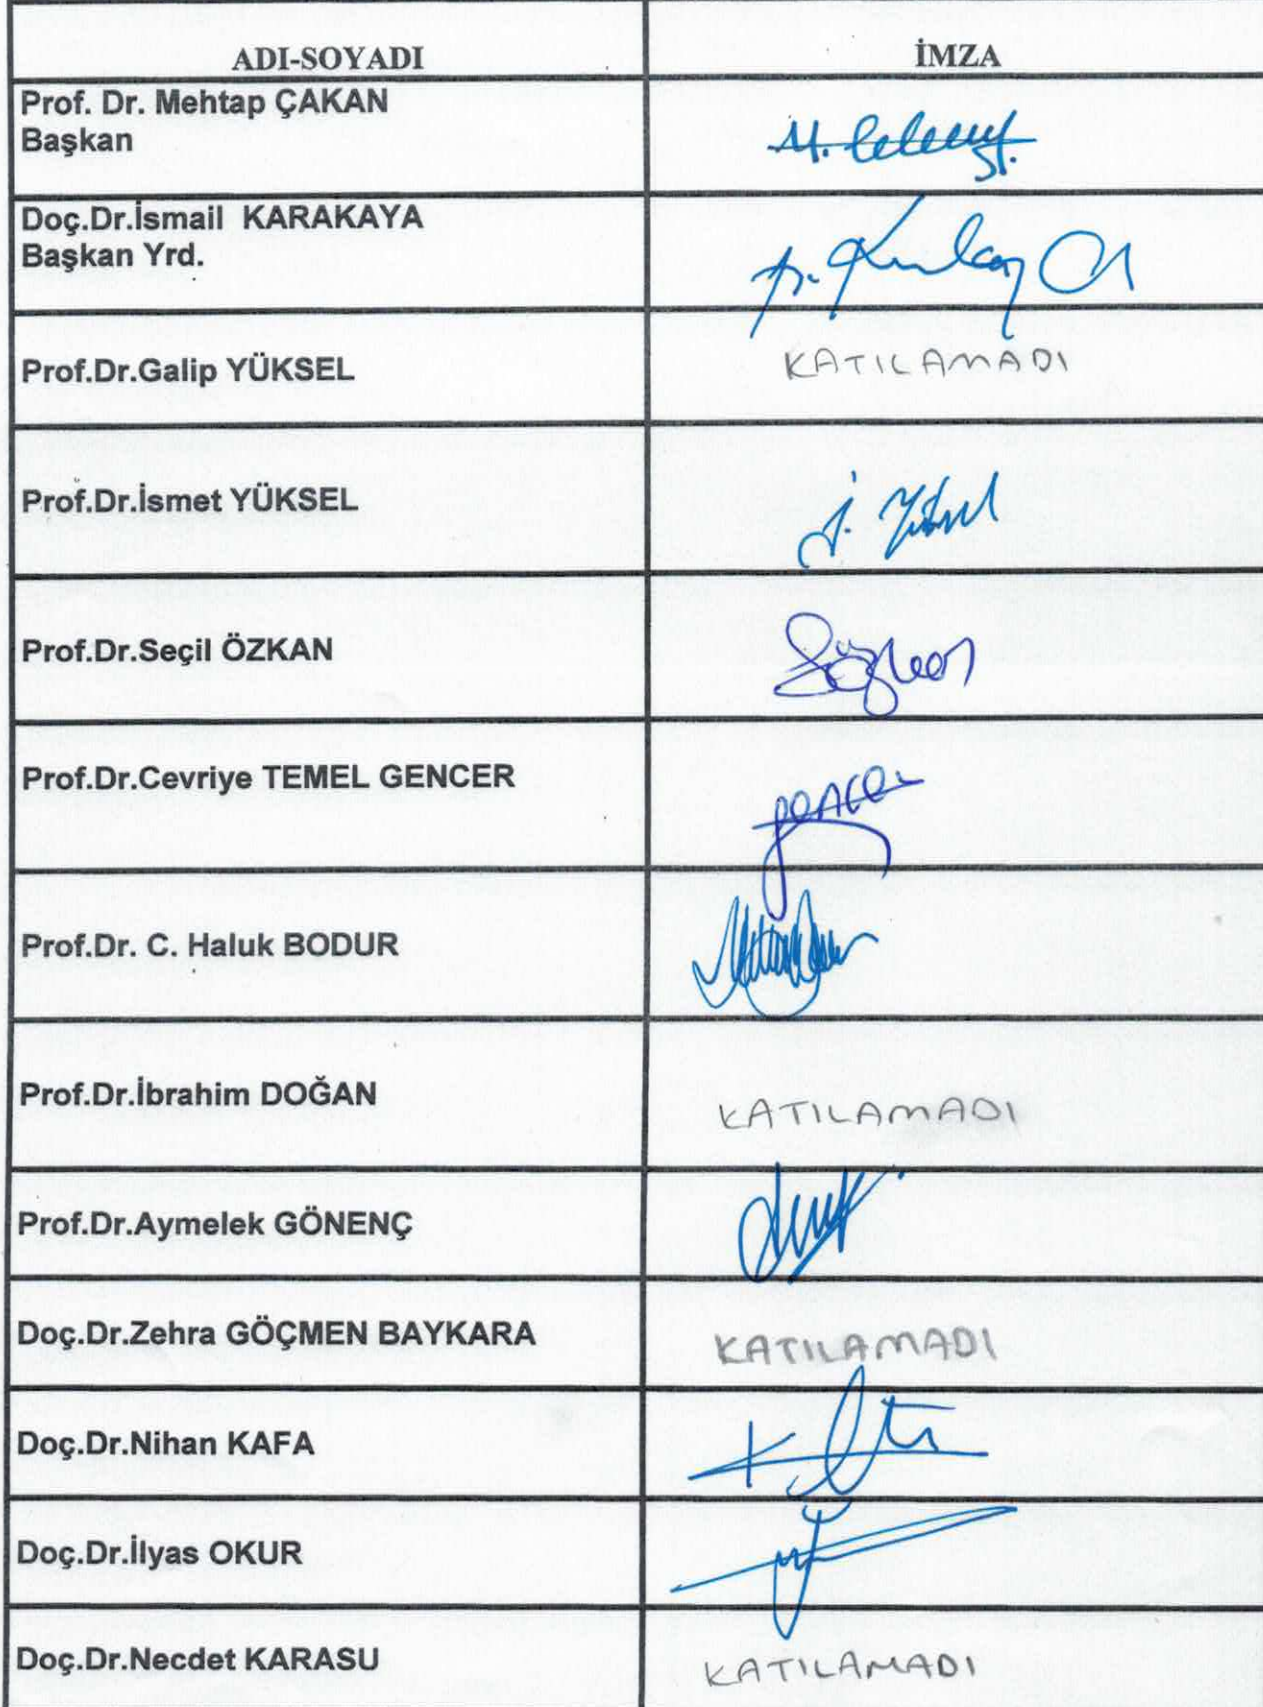 ADI-SOYADI İMZA
Prof. Dr. Mehtap ÇAKAN
Başkan
Doç.Dr.İsmail KARAKAYA
Başkan Yrd.
Prof.Dr.Galip YÜKSEL KATILAMADI
Prof.Dr.İsmet YÜKSEL
Prof.Dr.Seçil ÖZKAN
Prof.Dr.Cevriye TEMEL GENCER
Prof.Dr. C. Haluk BODUR
Prof.Dr.İbrahim DOĞAN KATILAMADI
Prof.Dr.Aymelek GÖNENÇ
Doç.Dr.Zehra GÖÇMEN BAYKARA KATILAMADI
Doç.Dr.Nihan KAFA
Doç.Dr.İlyas OKUR
Doç.Dr.Necdet KARASU KATILAMADI